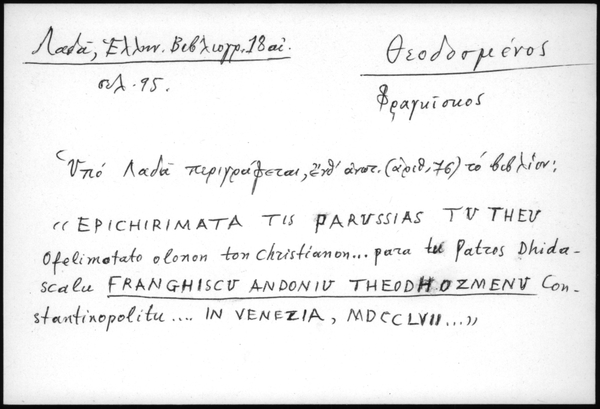 Λαδᾶ, Ἑλλην. Βιβλιογρ. 18 αἰ.
σελ. 95.
Θεοδοσμένος
Φραγκῖσκος
Ὑπό Λαδᾶ περιγράφεται, ἔνθ' ἀνωτ. (ἀριθ. 76) τό βιβλίον:
« EPICHIRIMATA TIS PARUSSIAS TU THEU
Ofelimotato olonon ton Christianon... para tu Patros Dhida-
scalu FRANGHISCU ANDONIU THEODHOZMENU Con-
stantinopolitu .... IN VENEZIA, MDCCLVII ... »